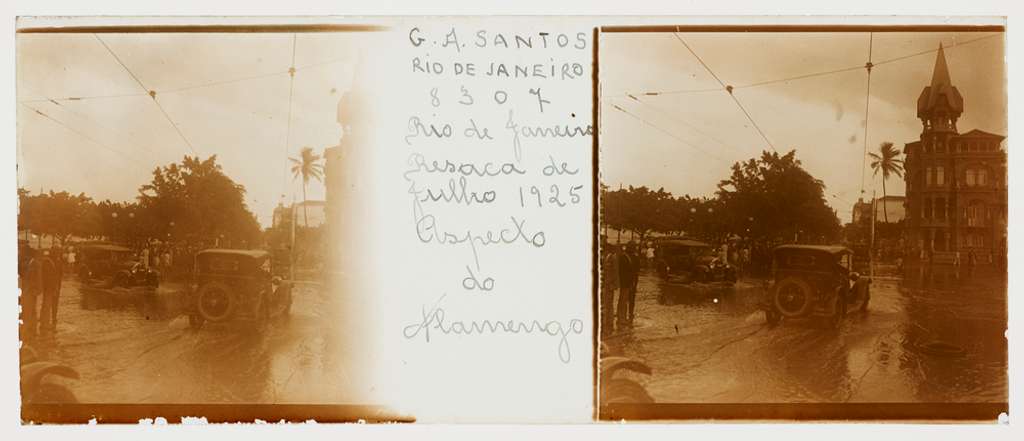 G. A. SANTOS
RIO DE JANEIRO
8307
Rio de Janeiro
Resaca de
Julho 1925
Aspecto
do
Flamengo